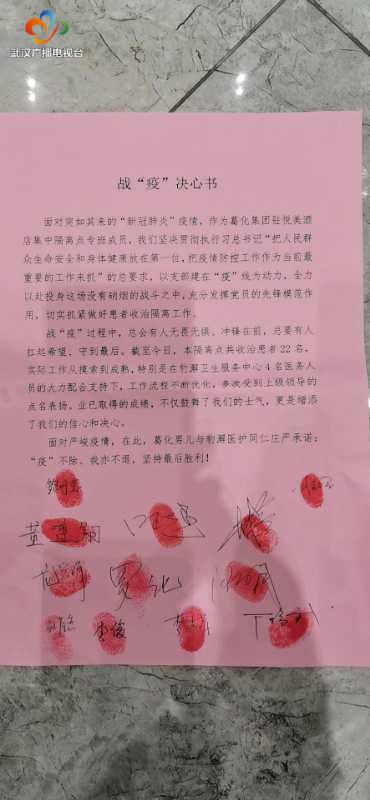 武汉广播电视台
战“疫”决心书
面对突如其来的“新冠肺炎”疫情，作为葛化集团驻悦美酒
店集中隔离点专班成员，我们坚决贯彻执行习总书记“把人民群
众生命安全和身体健康放在第一位，把疫情防控工作作为当前最
重要的工作来抓”的总要求，以支部建在“疫”线为动力，全力
以赴投身这场没有硝烟的战斗之中，充分发挥党员的先锋模范作
用，切实抓紧做好患者收治隔离工作。
战“疫”过程中，总会有人无畏无惧、冲锋在前，总要有人
扛起希望、守到最后。截至今日，本隔离点共收治患者22名，
实际工作从摸索到成熟，特别是在豹澥卫生服务中心4名医务人
员的大力配合支持下，工作流程不断优化，多次受到上级领导的
点名表扬。业已取得的成绩，不仅鼓舞了我们的士气，更是增添
了我们的信心和决心。
面对严峻疫情，在此，葛化男儿与豹澥医护同仁庄严承诺：
“疫”不除、我亦不退，坚持最后胜利！
李俊